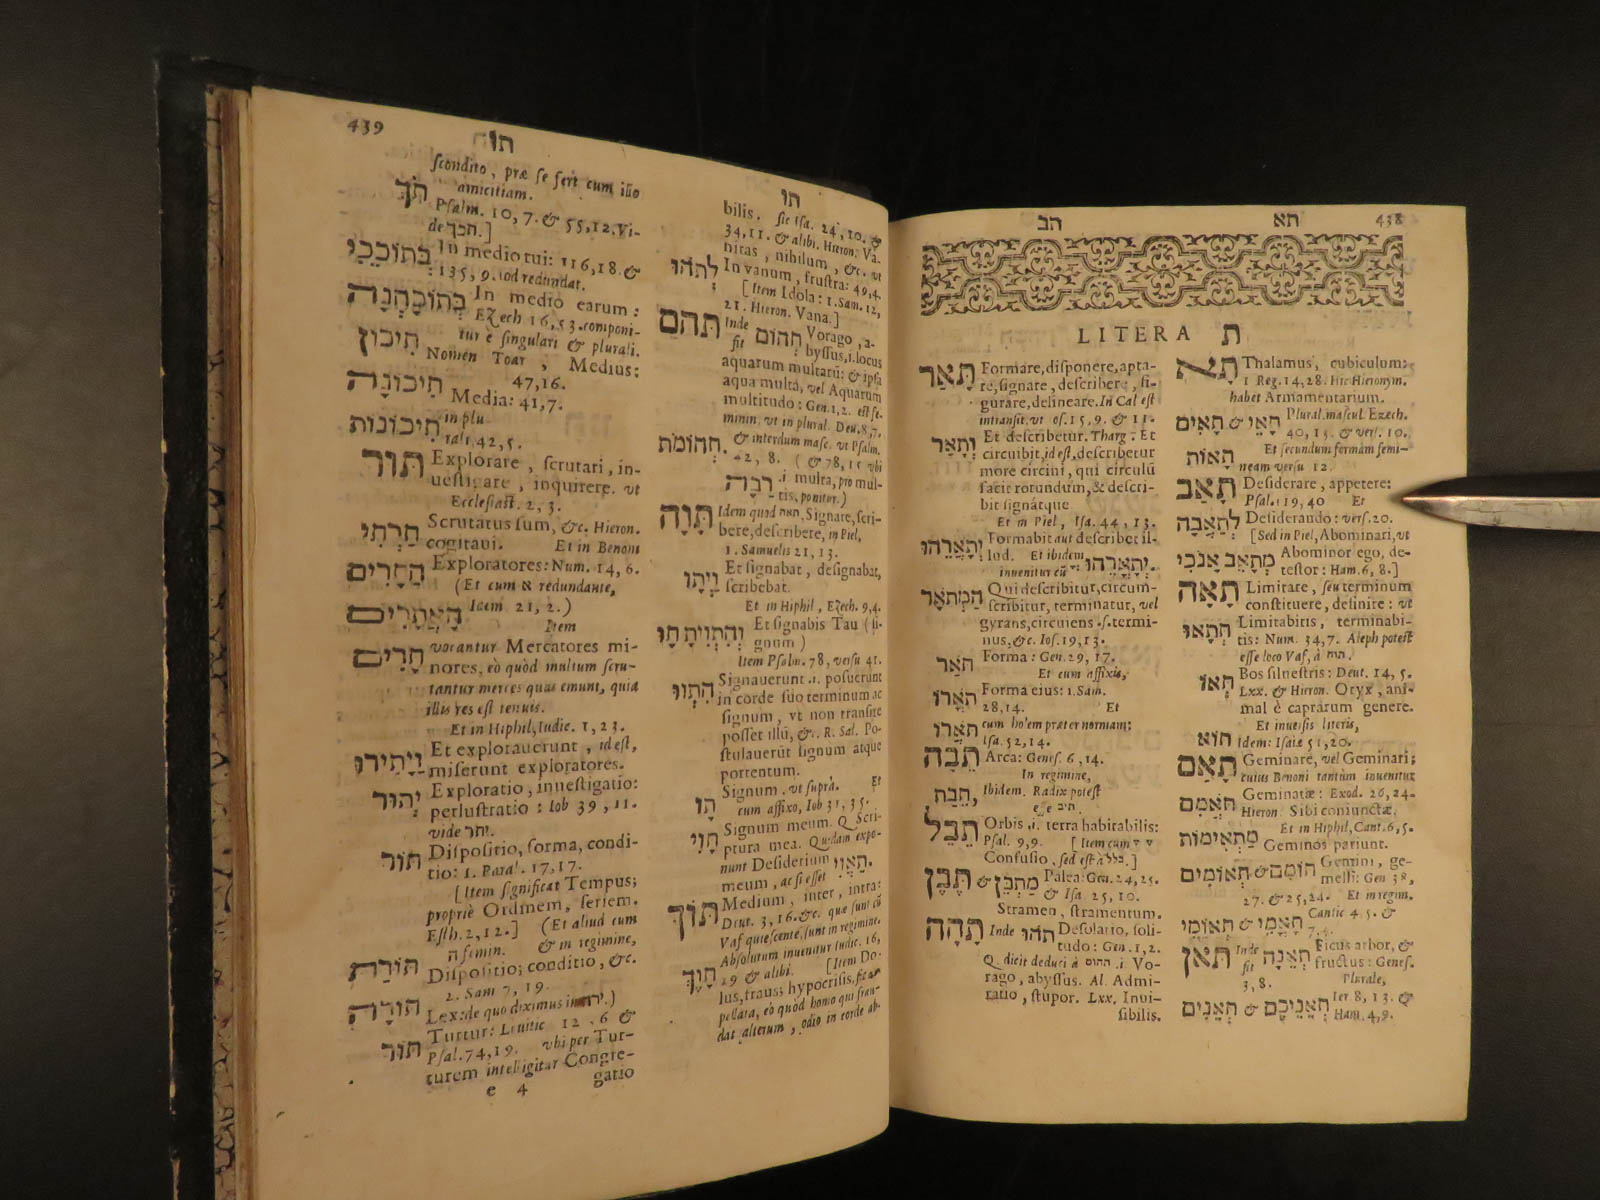 תב
תא
438
LITERA ת
תָּא Thalamus, cubiculum:
1 Reg. 14, 28. Hic Hieronym.
habet Armamentarium.
תָּאֵי & תָּאִים Plural. mascul. Ezech.
40, 15. & vers. 10.
תָּאוֹת Et secundum formam femi-
neam versu 12.
תָּאַב Desiderare, appetere:
Psal. 119, 40 Et
לְתַאֲבָה Desiderando: vers. 20.
[Sed in Piel, Abominari, ut
מְתָאֵב אָנֹכִי Abominor ego, de-
testor: Ham. 6, 8.]
תָּאָה Limitare, seu terminum
constituere, definire: ut
תְּתָאוּ Limitabitis, terminabi-
tis: Num. 34, 7. Aleph potest
esse loco Vaf, à תוה.
תְּאוֹ Bos silvestris: Deut. 14, 5.
Lxx. & Hieron. Oryx, ani-
mal è caprarum genere.
Et inversis literis,
תוֹא Idem: Isaiæ 51, 20.
תָּאַם Geminare, vel Geminari;
cuius Benoni tantùm invenitur
תֹּאֲמִם Geminatæ: Exod. 26, 24.
Hieron Sibi coniunctæ.
Et in Hiphil, Cant. 6, 5.
מַתְאִימוֹת Geminos pariunt.
תּוֹמִם & תְּאוֹמִים Gemini, ge-
melli: Gen 38,
27. & 25, 24. Et in regim.
תָּאֳמֵי & תְּאוֹמֵי Cantic 4, 5. &
7, 4.
תאן Inde תְּאֵנָה Ficus arbor, &
fit fructus: Genes.
3, 8. Plurale,
תְּאֵנִים & תְּאֵנֵיכֶם Ier 8, 13. &
Ham. 4, 9.
תָּאַר Formare, disponere, apta-
re, signare, describere, fi-
gurare, delineare. In Cal est
intransit. vt Ios. 15, 9. & 11.
וְתָאַר Et describetur. Tharg. Et
circuibit, id est, describetur
more circini, qui circulũ
facit rotundum, & descri-
bit signátque
Et in Piel, Isa. 44, 13.
יְתָאֲרֵהוּ Formabit aut describet il-
lud. Et ibidem
יְתָאֳרֵהוּ invenitur cũ
הַמְּתֹאָר Qui describitur, circum-
scribitur, terminatur, vel
gyrans, circuiens .s. termi-
nus, &c. Ios. 19, 13.
תֹּאַר Forma: Gen. 29, 17.
Et cum affixis,
תָּאֳרוֹ Forma eius: 1. Sam.
28, 14. Et
תֹּאֲרוֹ cum ho'em præter normam:
Isa. 52, 14.
תֵּבָה Arca: Genes. 6, 14.
In regimine,
תֵּבַת, Ibidem. Radix potest
תֵּבֵל Orbis .i. terra habitabilis:
Psal. 9, 9. [Item cum
Confusio, sed est à בלל.]
תֶּבֶן & מַתְבֵּן Palea: Gen. 24, 25.
& Isa 25, 10.
Stramen, stramentum.
תָּהָה Inde תֹּהוּ Desolatio, soli-
tudo: Gen. 1, 2.
Q. dicit deduci à תהום .i. Vo-
rago, abyssus. Al. Admi-
ratio, stupor. Lxx. Invi-
sibilis.
439
תו
תו
bilis. sic Isa. 24, 10. &
34, 11. & alibi. Hieron. Va-
nitas, nihilum, &c. vt
לְתֹהוּ In vanum, frustra: 49, 4.
[Item Idola: 1. Sam. 12,
21. Hieron. Vana.]
תהם Inde תְּהוֹם Vorago, a-
fit byssus, .i. locus
aquarum multarũ: & ipsa
aqua multa, vel Aquarum
multitudo: Gen. 1, 2. est fe-
minin. vt in plural. Deu. 8, 7.
תְּהוֹמֹת. & interdum masc. vt Psalm.
42, 8. (& 78, 15 vbi
רַבָּה .i multa, pro mul-
tis, ponitur.)
תָּוָה Idem quod תאה, Signare, scri-
bere, describere, in Piel,
1. Samuelis 21, 13.
וַיְתָו Et signabat, designabat,
scribebat.
Et in Hiphil, Ezech. 9, 4.
וְהִתְוִיתָ תָּו Et signabis Tau (si-
gnum)
Item Psalm. 78, versu 41.
הִתְווּ Signaverunt .i. posuerunt
in corde suo terminum ac
signum, vt non transire
posset illũ, &c. R. Sal. Po-
stulaverũt signum atque
portentum.
תָּו Signum. vt suprà. Et
cum affixo, Iob 31, 35.
תָּוִי Signum meum. Q. Scri-
ptura mea. Quidam expo-
nunt Desiderium תַּאֲוִי.
meum, ac si esset
תָּוֶךְ Medium, inter, intra:
Deut. 3, 16. &c. quæ sunt cũ
Vaf quiescente, sunt in regimine.
Absolutum invenitur Iudic. 16,
תָּוֶךְ 29 & alibi. [Item Do-
lus, fraus, hypocrisis, sic ap-
pellata, eò quòd homo qui frau-
dat alterum, odio in corde ab-
scondito, præ se fert cum illo
amicitiam.
תֹּךְ Psalm. 10, 7. & 55, 12. Vi-
de תכך.]
בְּתוֹכֵכִי In medio tui: 116, 18. &
135, 9. iod redundat.
בְּתוֹכָהְנָה In medio earum:
Ezech 16, 53. componi-
tur è singulari & plurali.
תִּיכוֹן Nomen Toar, Medius:
47, 16.
תִּיכוֹנָה Media: 41, 7.
תִּיכוֹנוֹת in plu-
rali, 42, 5.
תּוּר Explorare, scrutari, in-
vestigare, inquirere. vt
Ecclesiast. 2, 3.
תַּרְתִּי Scrutatus sum, &c. Hieron.
cogitavi. Et in Benoni
הַתָּרִים Exploratores: Num. 14, 6.
(Et cum א redundante,
הָאֲתָרִים Item 21, 2.)
Item
תָּרִים vocantur Mercatores mi-
nores, eò quòd multum scru-
tantur merces quas emunt, quia
illis res est tenuis.
Et in Hiphil, Iudic. 1, 23.
וַיָּתִירוּ Et exploraverunt, id est,
miserunt exploratores.
יְתוּר Exploratio, investigatio:
perlustratio: Iob 39, 11.
vide יתר.
תּוֹר Dispositio, forma, condi-
tio: 1. Paral. 17, 17.
[Item significat Tempus;
propriè Ordinem, seriem.
Esth. 2, 12.] (Et aliud cum
ה femin. & in regimine,
תּוֹרַת Dispositio; conditio, &c.
2. Sam 7, 19.
תּוֹרָה Lex: de quo diximus in ירה.)
תּוֹר Turtur: Levitic 12, 6 &
Psal. 74, 19. vbi per Tur-
turem intelligitur Congre-
e 4 gatio